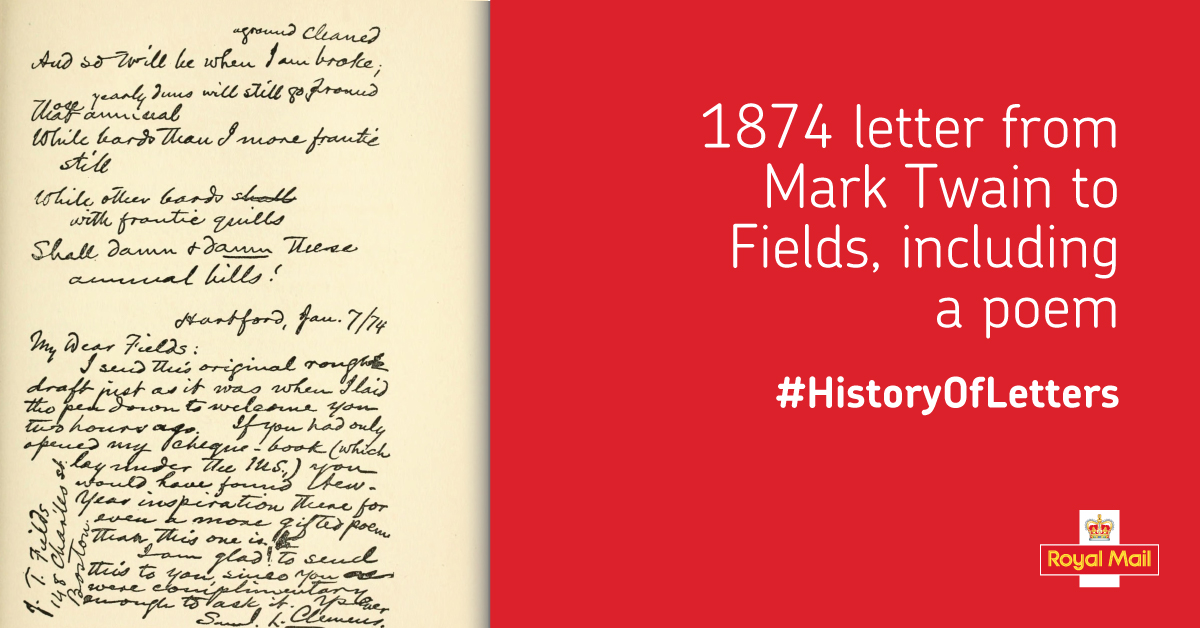 aground cleaned
And so 'twill be when I am broke;
yearly duns will still go round
Those
That annual
While bards than I more frantic
still
While other bards shall
with frantic quills
Shall damn & damn these
annual bills!
Hartford, Jan. 7/74
My Dear Fields:
I send this original rough
draft just as it was when I laid
the pen down to welcome you
two hours ago. If you had only
opened my cheque-book (which
lay under the MS.,) you
would have found New-
Year inspiration there for
even a more gifted poem
than this one is.
I am glad to send
this to you, since you
were complimentary
enough to ask it. Ys Ever
Saml. L. Clemens.
J. T. Fields
148 Charles st.
Boston.
1874 letter from
Mark Twain to
Fields, including
a poem
#HistoryOfLetters
Royal Mail